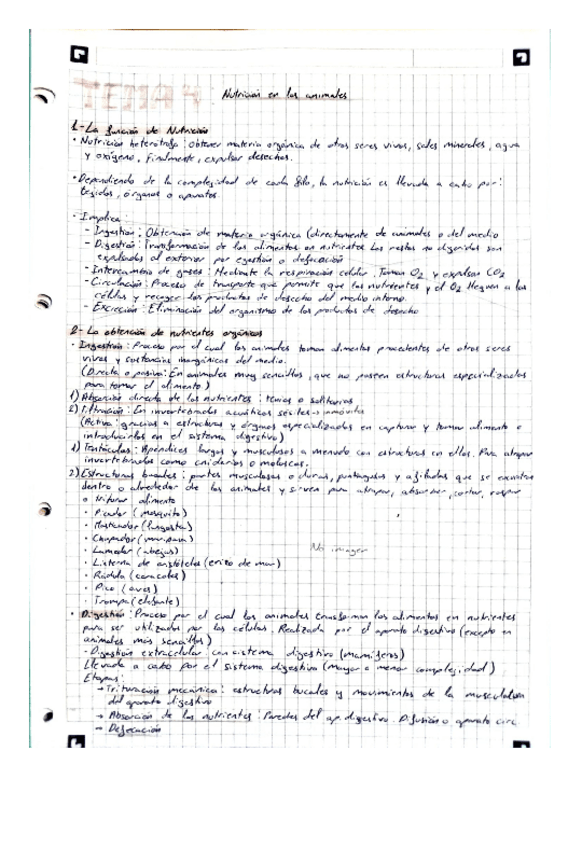 TEMA 4
Nutrición en los animales
1-La función de Nutrición
• Nutrición heterótrofa: obtener materia orgánica de otros seres vivos, sales minerales, agua
y oxígeno. Finalmente, expulsar desechos.
• Dependiendo de la complejidad de cada filo, la nutrición es llevada a cabo por:
tejidos, órganos o aparatos.
• Implica:
- Ingestión: Obtención de materia orgánica (directamente de animales o del medio
- Digestión: Transformación de los alimentos en nutrientes Los restos no digeridos son
expulsados al exterior por egestión o defecación
- Intercambio de gases: Mediante la respiración celular. Toman O2 y expulsan CO2
- Circulación: Proceso de transporte que permite que los nutrientes y el O2 lleguen a las
células y recoger los productos de desecho del medio interno.
- Excreción: Eliminación del organismo de los productos de desecho
2- La obtención de nutrientes orgánicos
• Ingestión: Proceso por el cual los animales toman alimentos procedentes de otros seres
vivos y sustancias inorgánicas del medio.
(Directa o pasiva: En animales muy sencillos, que no poseen estructuras especializadas
para tomar el alimento.)
1) Absorción directa de los nutrientes: tenias o solitarias
2) Filtración: En invertebrados acuáticos sésiles → inmóviles
(Activa: gracias a estructuras y órganos especializados en capturar y tomar alimento e
introducirlos en el sistema digestivo)
1) Tentáculos: Apéndices largos y musculosos a menudo con estructuras en ellos. Para atrapar
invertebrados como cnidarios o moluscos.
2) Estructuras bucales: partes musculosas o duras, puntiagudas y afiladas que se encuentran
dentro o alrededor de los animales y sirven para atrapar, absorber, cortar, raspar
o triturar alimento
• Picador (mosquito)
• Masticador (langosta)
• Chupador (mariposa)
• Lamedor (abejas)
No imagen
• Linterna de aristóteles (erizo de mar)
• Rádula (caracoles)
• Pico (aves)
• Trompa (elefante)
• Digestión: Proceso por el cual los animales transforman los alimentos en nutrientes
para ser utilizados por las células. Realizada por el aparato digestivo (excepto en
animales más sencillos)
- Digestión extracelular con sistema digestivo (mamíferos)
Llevada a cabo por el sistema digestivo (mayor o menor complejidad)
Etapas:
→ Trituración mecánica: estructuras bucales y movimientos de la musculatura
del aparato digestivo
→ Absorción de los nutrientes: Paredes del ap. digestivo. Difusión o aparato circ.
- Defecación